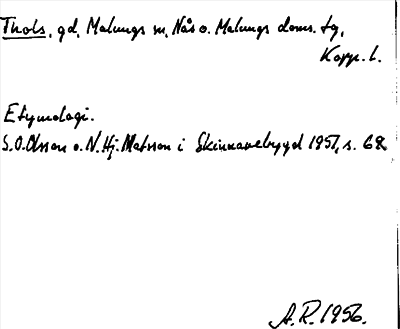 Thols, gd, Malungs sn, Nås o. Malungs doms. tg,
Kopp. l.
Etymologi.
S.O.Olsson o. N.Hj.Matsson i Skinnarebygd 1951, s. 68.
A.R. 1956.